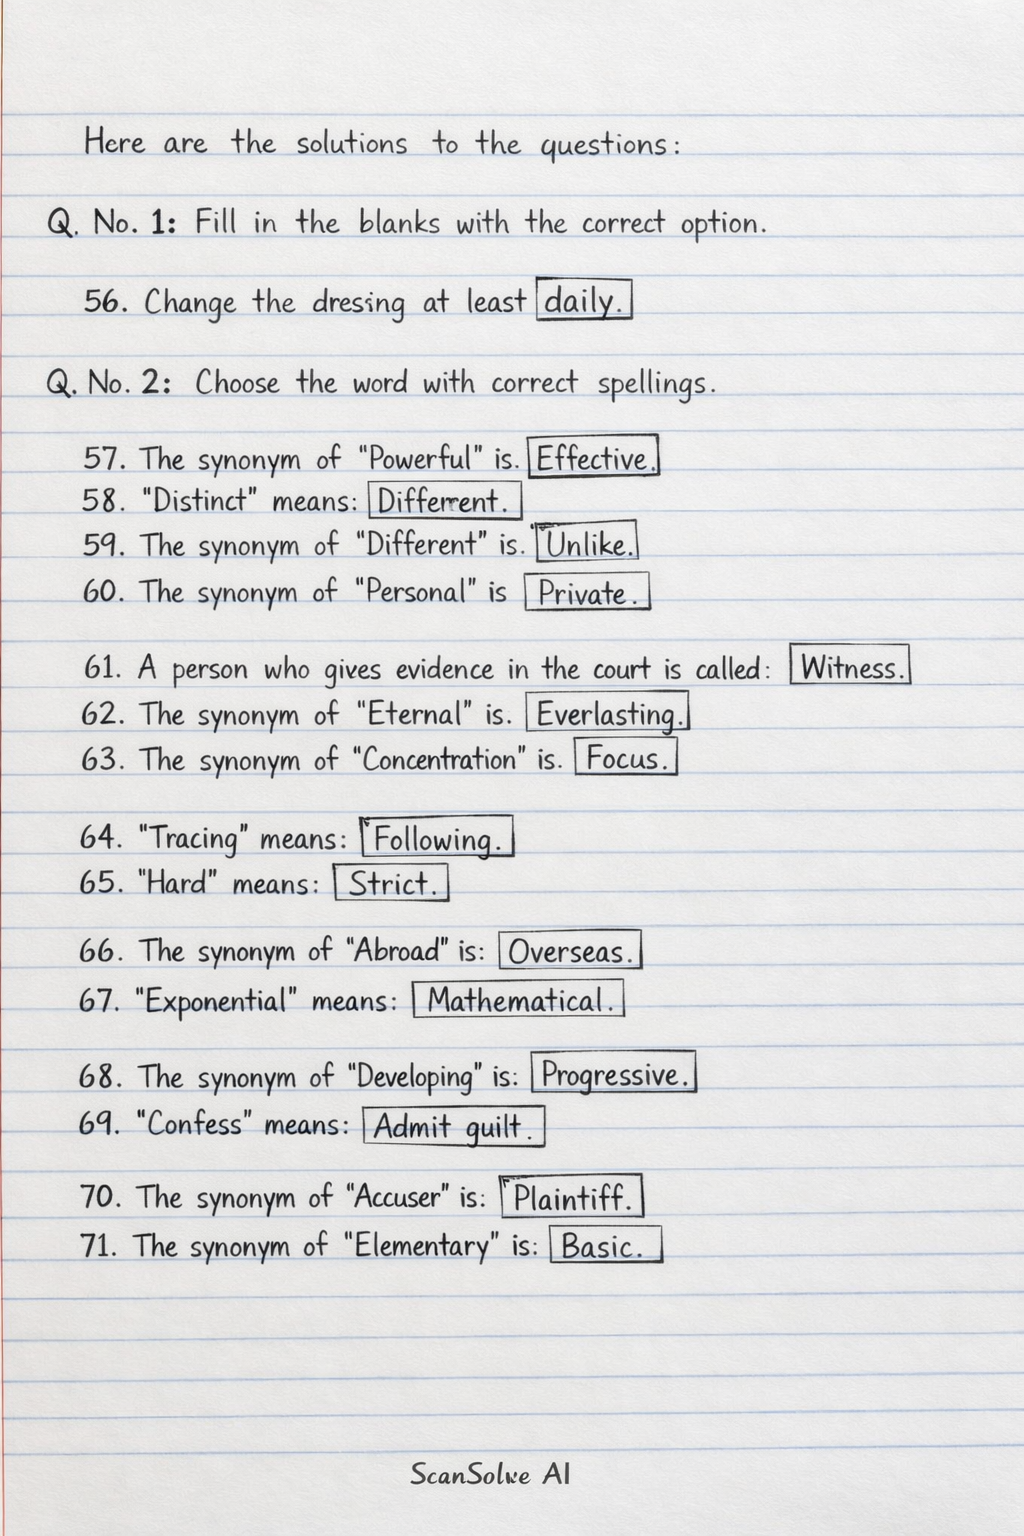 Here are the solutions to the questions:
Q. No. 1: Fill in the blanks with the correct option.
56. Change the dresing at least daily.
Q. No. 2: Choose the word with correct spellings.
57. The synonym of "Powerful" is. Effective.
58. "Distinct" means: Different.
59. The synonym of "Different" is. Unlike.
60. The synonym of "Personal" is Private.
61. A person who gives evidence in the court is called: Witness.
62. The synonym of "Eternal" is. Everlasting.
63. The synonym of "Concentration" is. Focus.
64. "Tracing" means: Following.
65. "Hard" means: Strict.
66. The synonym of "Abroad" is: Overseas.
67. "Exponential" means: Mathematical.
68. The synonym of "Developing" is: Progressive.
69. "Confess" means: Admit guilt.
70. The synonym of "Accuser" is: Plaintiff.
71. The synonym of "Elementary" is: Basic.
ScanSolve AI